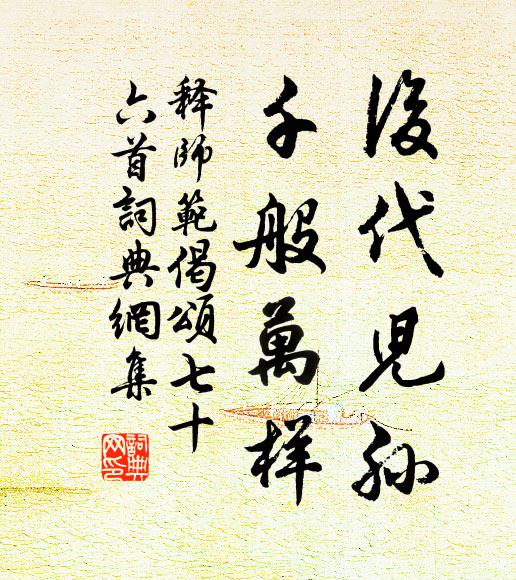 後代児孫
千般萬样
释師範偈頌七十
六首詞典網集
詞典
网印